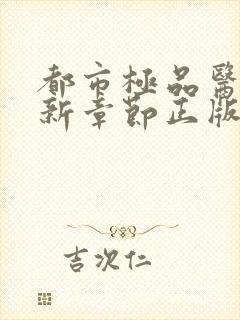 都市極品醫
新章節正版
吉次仁